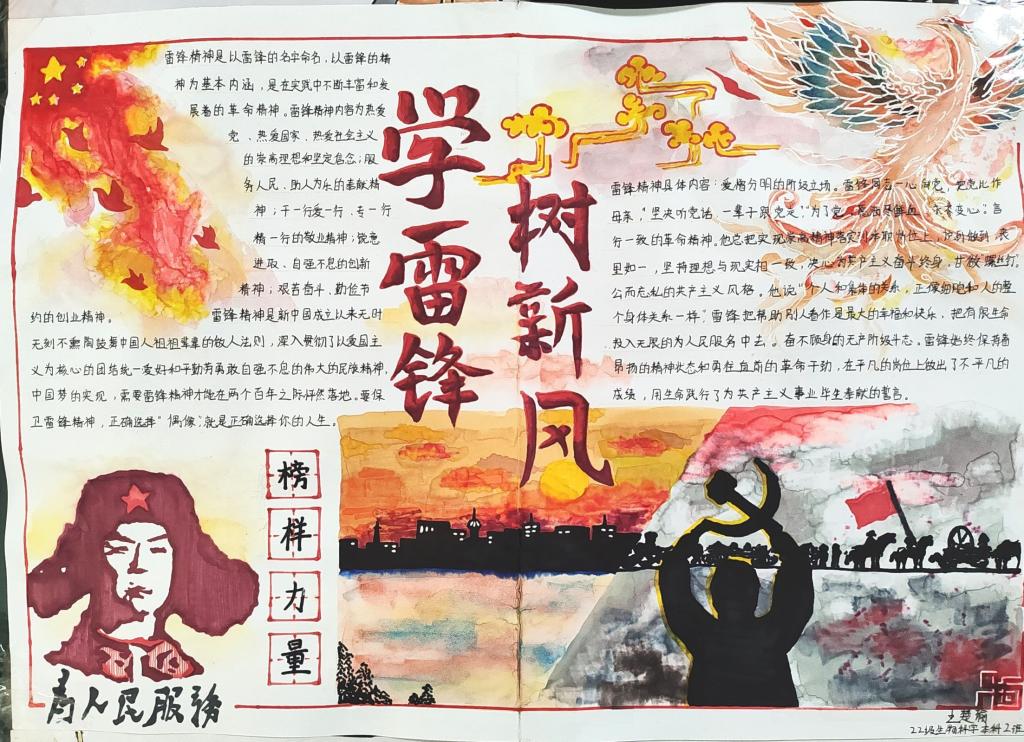 学雷锋
树新风
雷锋精神是以雷锋的名字命名,以雷锋的精
神为基本内涵,是在实践中不断丰富和发
展着的革命精神。雷锋精神内容为热爱
党、热爱国家、热爱社会主义
的崇高理想和坚定信念;服
务人民、助人为乐的奉献精
神;干一行爱一行、专一行
精一行的敬业精神;锐意
进取、自强不息的创新
精神;艰苦奋斗、勤俭节
约的创业精神。
雷锋精神是新中国成立以来无时
无刻不熏陶鼓舞中国人祖祖辈辈的做人法则,深入贯彻了以爱国主
义为核心的团结统一爱好和平勤劳勇敢自强不息的伟大的民族精神,
中国梦的实现,需要雷锋精神才能在两个百年之际
落地。要保
卫雷锋精神,正确选择"偶像"就是正确选择你的人生。
雷锋精神具体内容:爱憎分明的阶级立场。雷锋同志一心向党,把党比作
母亲,"坚决听党话,一辈子跟党走","为了党
永不变心"。言
行一致的革命精神。他总把实现崇高精神落实到本职岗位上,
做到表
里如一,坚持理想与现实相一致,决心为共产主义奋斗终身,甘做螺丝钉。
公而忘私的共产主义风格。他说"个人和集体的关系,正像细胞和人的整
个身体关系一样"。雷锋把帮助别人看作是最大的幸福和快乐,把有限生命
投入无限的为人民服务中去。奋不顾身的无产阶级斗志。雷锋始终保持着
昂扬的精神状态和勇往直前的革命干劲,在平凡的岗位上做出了不平凡的
成绩,用生命践行了为共产主义事业毕生奉献的誓言。
榜
样
力
量
为人民服務
22级生物科学本科2班